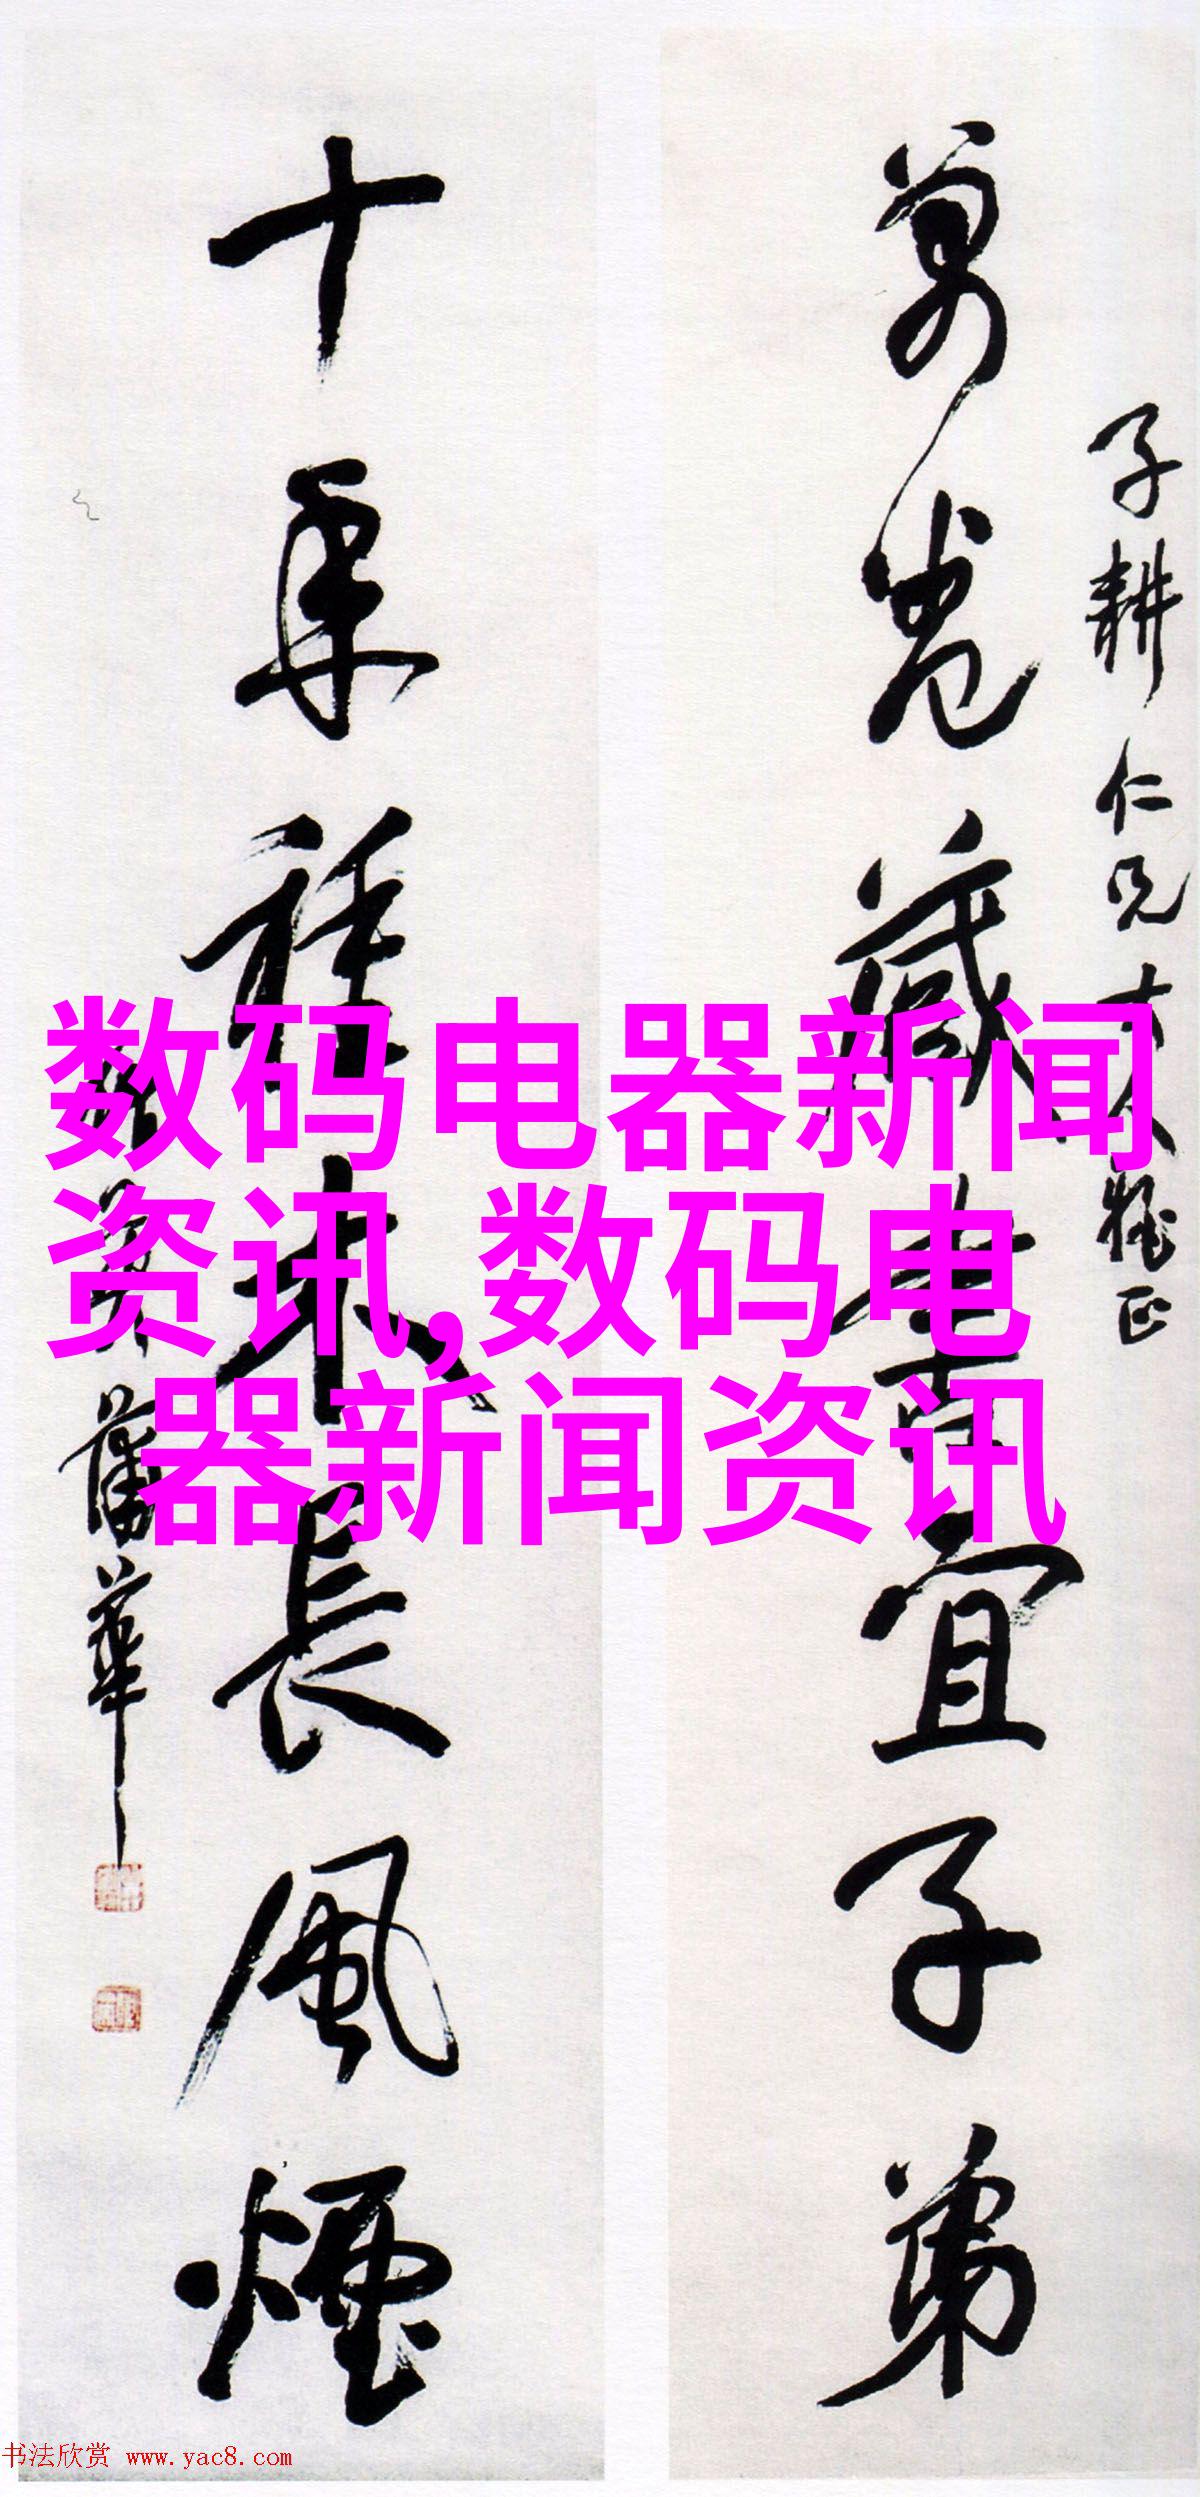 子耕仁兄大人雅正
萬卷藏書宜子弟
十年種木長風煙
蒲華
数码电器新闻
资讯,数码电
器新闻资讯
书法欣赏 www.yac8.com